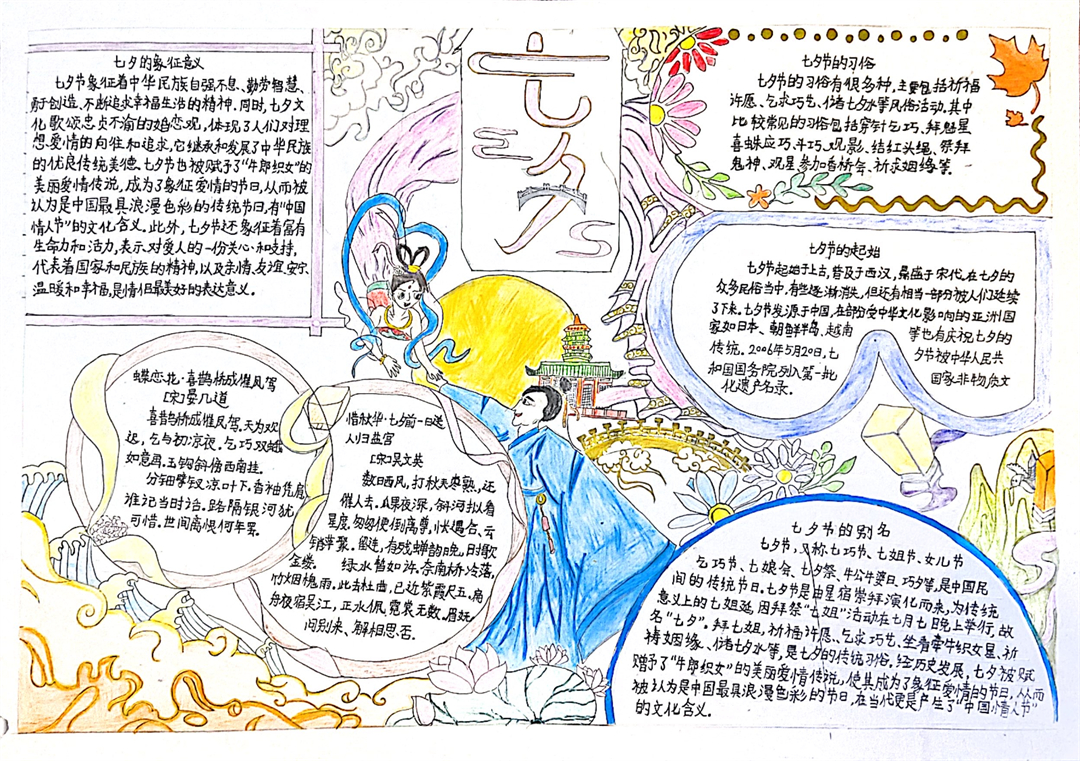 七夕
七夕的象征意义
七夕节象征着中华民族自强不息、勤劳智慧、
耐于创造、不断追求幸福生活的精神.同时,七夕文
化歌颂忠贞不渝的婚恋观,体现了人们对理
想爱情的向往和追求,它继承和发展了中华民族
的优良传统美德.七夕节也被赋予了“牛郎织女”的
美丽爱情传说,成为了象征爱情的节日,从而被
认为是中国最具浪漫色彩的传统节日,有“中国
情人节”的文化含义.此外,七夕节还象征着富有
生命力和活力,表示对爱人的一份关心和支持,
代表着国家和民族的精神,以及亲情、友谊、安宁、
温暖和幸福,是情侣最美好的表达意义.
七夕节的习俗
七夕节的习俗有很多种,主要包括祈福
许愿、乞求巧艺、储七夕水等风俗活动.其中
比较常见的习俗包括穿针乞巧、拜魁星
喜蛛应巧、斗巧、观影、结红头绳、祭拜
鬼神、观星参加香桥会、祈求姻缘等.
七夕节的起始
七夕节起始于上古,普及于西汉,鼎盛于宋代.在七夕的
众多民俗当中,有些逐渐消失,但还有相当一部分被人们延续
了下来.七夕节发源于中国,在部分受中华文化影响的亚洲国
家如日本、朝鲜半岛、越南 等也有庆祝七夕的
传统.2006年5月20日,七 夕节被中华人民共
和国国务院列入第一批 国家非物质文
化遗产名录.
蝶恋花·喜鹊桥成催凤驾
[宋]晏几道
喜鹊桥成催凤驾.天为欢
迟,乞与初凉夜.乞巧双蛾
如意画.玉钩斜傍西南挂.
分钿擘钗凉叶下.香袖凭肩
谁记当时话.路隔银河犹
可惜.世间离恨何年罢.
惜秋华·七夕前一日送
人归盐官
[宋]吴文英
数日西风,打秋天枣熟,还
催人去.瓜果夜深,斜河拟看
星度.匆匆便倒离尊,怅遇合、云
销萍聚.留连,有残蝉韵晚,时歌
金缕.
绿水暂如许.奈南桥冷落,
竹烟槐雨.此去杜曲,已近紫霄尺五.扁
舟夜宿吴江,正水佩霓裳无数.眉妩.
问别来、解相思否.
七夕节的别名
七夕节,又称七巧节、七姐节、女儿节
乞巧节、七娘会、七夕祭、牛公牛婆日、巧夕等,是中国民
间的传统节日.七夕节是由星宿崇拜演化而来,为传统
意义上的七姐诞,因拜祭“七姐”活动在七月七晚上举行,故
名“七夕”.拜七姐,祈福许愿、乞求巧艺、坐看牵牛织女星、祈
祷姻缘、储七夕水等,是七夕的传统习俗.经历史发展,七夕被赋
赠予了“牛郎织女”的美丽爱情传说,使其成为了象征爱情的节日,从而
被认为是中国最具浪漫色彩的节日,在当代更是产生了“中国情人节”
的文化含义.